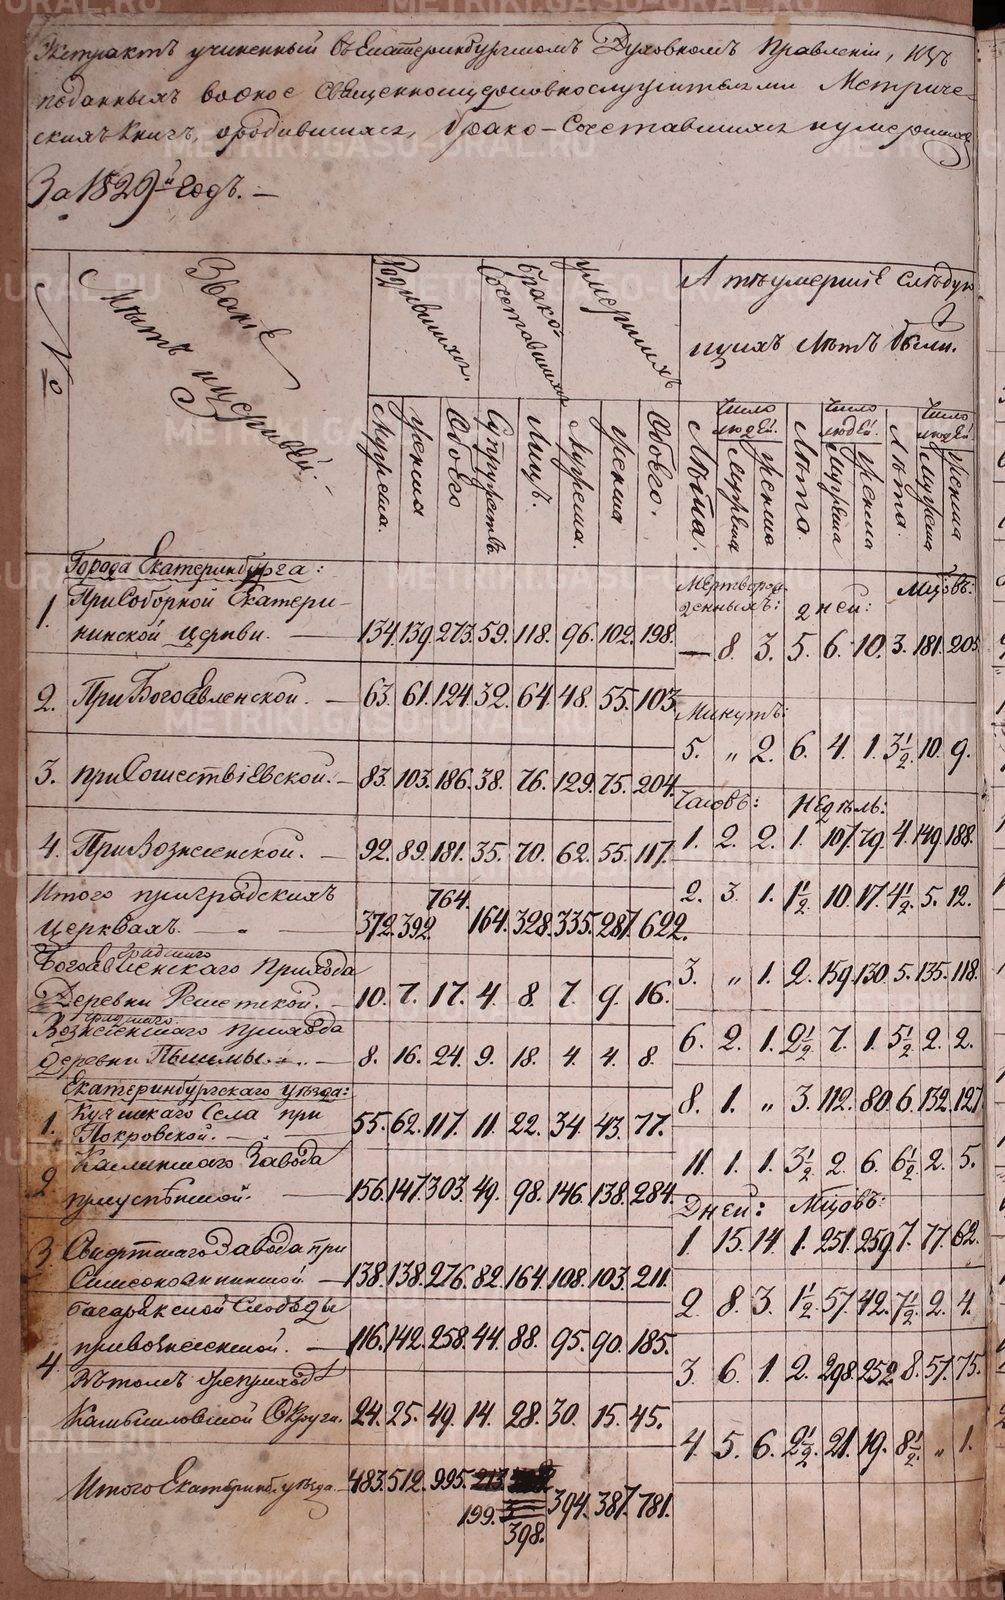 Экстрактъ учиненный въ Екатеринбургскомъ Духовномъ Правленіи, изъ
поданныхъ во оное Священноцерковнослужителями Метриче-
скихъ Книгъ, о родившихся, Брако-Сочетавшихся и умершихъ
За 1829й Годъ. —
№
Званіе
Мѣстъ и церквей.
Родившихся.
Брако-
Сочетавшихся
умершихъ
А тѣ умершіе слѣдую
щихъ Лѣтъ были.
Мужеска.
женска
Обоего
Супружествъ.
Лицъ.
Мужеска.
женска
Обоего.
Лѣта.
Число людей.
Мужеска
женска
Лѣта.
Число людей.
Мужеска
женска
Лѣта.
Число людей.
Мужеска
женска
Города Екатеринбурга:
1. При Соборной Екатери-
нинской церкви. — 134. 139. 273. 59. 118. 96. 102. 198.
2. При Богоявленской. — 63. 61. 124. 32. 64. 48. 55. 103.
3. при Сошествіевской. — 83. 103. 186. 38. 76. 129. 75. 204.
4. При Вознесенской. — 92. 89. 181. 35. 70. 62. 55. 117.
Итого при градскихъ
церквахъ. — 372. 392. 764. 164. 328. 335. 287. 622.
градского
Богоявленскаго Прихода
Деревни Решетской. — 10. 7. 17. 4. 8. 7. 9. 16.
градского
Вознесенскаго прихода
деревни Пышмы. — 8. 16. 24. 9. 18. 4. 4. 8.
Екатеринбургскаго уѣзда:
1. Куяшскаго Села при
Покровской. — 55. 62. 117. 11. 22. 34. 43. 77.
2 Каслинскаго Завода
при успѣнской. — 156. 147. 303. 49. 98. 146. 138. 284.
3. Завода при
— 138. 138. 276. 82. 164. 108. 103. 211.
4. Багарякской Слободы
при вознесенской. — 116. 142. 258. 44. 88. 95. 90. 185.
Въ томъ же приходѣ
Камышловской Округи. 24. 25. 49. 14. 28. 30. 15. 45.
Итого Екатеринб. уѣзда 483. 512. 995. 213. 394. 387. 781.
199. 398.
Мертворож-
денныхъ: дней: Мцовъ:
— 8. 3. 5. 6. 10. 3. 181. 205
Минутъ:
5. „ 2. 6. 4. 1. 3½ 10. 9.
Часовъ: Недѣль:
1. 2. 2. 1. 107. 79. 4. 149. 188.
2. 3. 1. 1½ 10. 17. 4½ 5. 12.
3. „ 1. 2. 159. 130. 5. 135. 118.
6. 2. 1. 2½ 7. 1. 5½ 2. 2.
8. 1. „ 3. 112. 80. 6. 132. 127.
11. 1. 1. 3½ 2. 6. 6½ 2. 5.
Дней: Мцовъ:
1. 15. 14. 1. 251. 259. 7. 77. 62.
2. 8. 3. 1½ 57. 42. 7½ 2. 4.
3. 6. 1. 2. 298. 252. 8. 57. 75.
4. 5. 6. 2½ 21. 19. 8½ „ 1.
METRIKI.GASO-URAL.RU